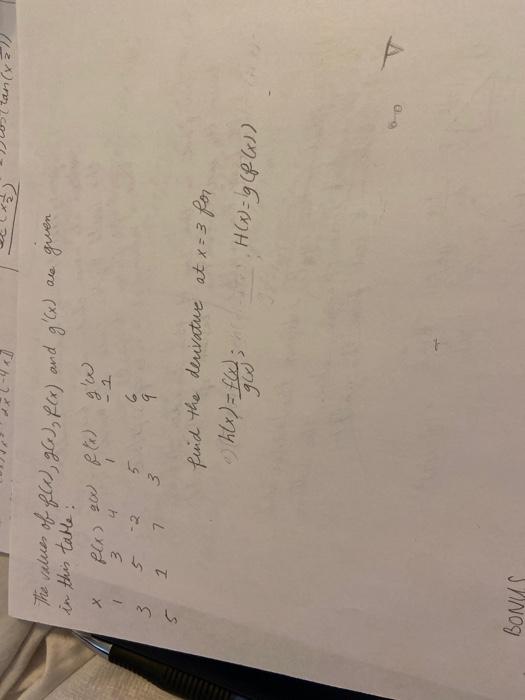 The values of f(x), g(x), f'(x) and g'(x) are given
in this table:
x f(x) g(x) f'(x) g'(x)
1 3 4 1 -1
3 5 -2 5 6
5 1 7 3 9
find the derivative at x = 3 for
a) h(x) = f(x)/g(x) ; H(x) = g(f(x))
BONUS